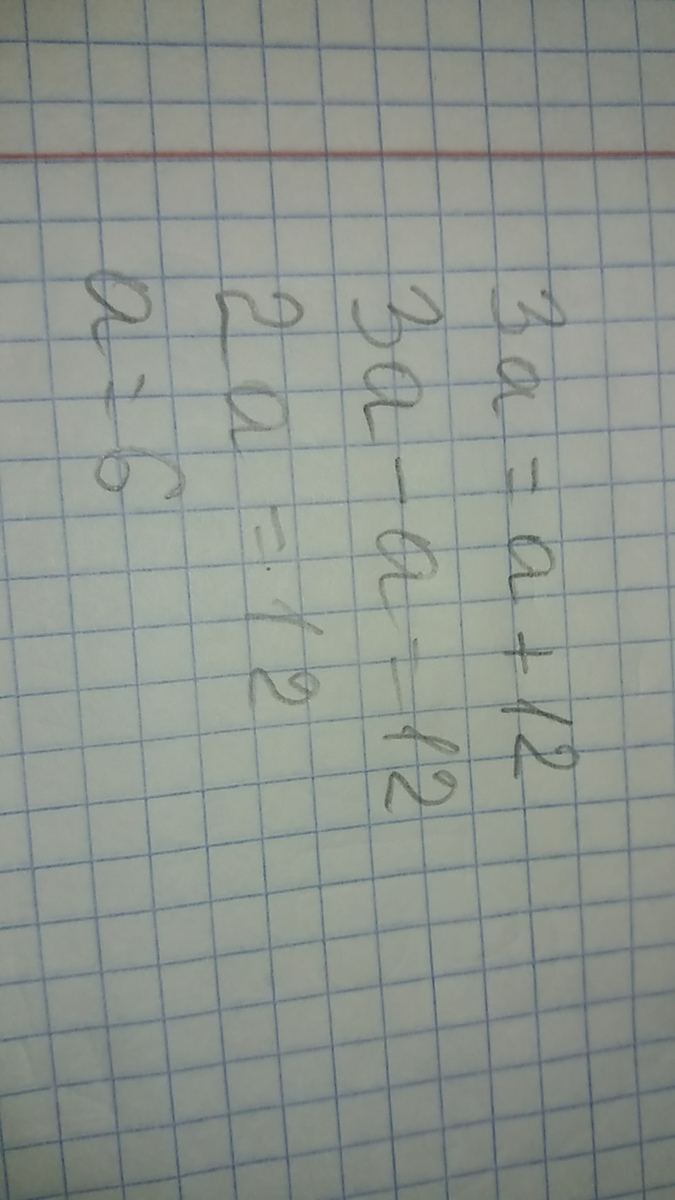 3a = a + 12
3a - a = 12
2a = 12
a = 6